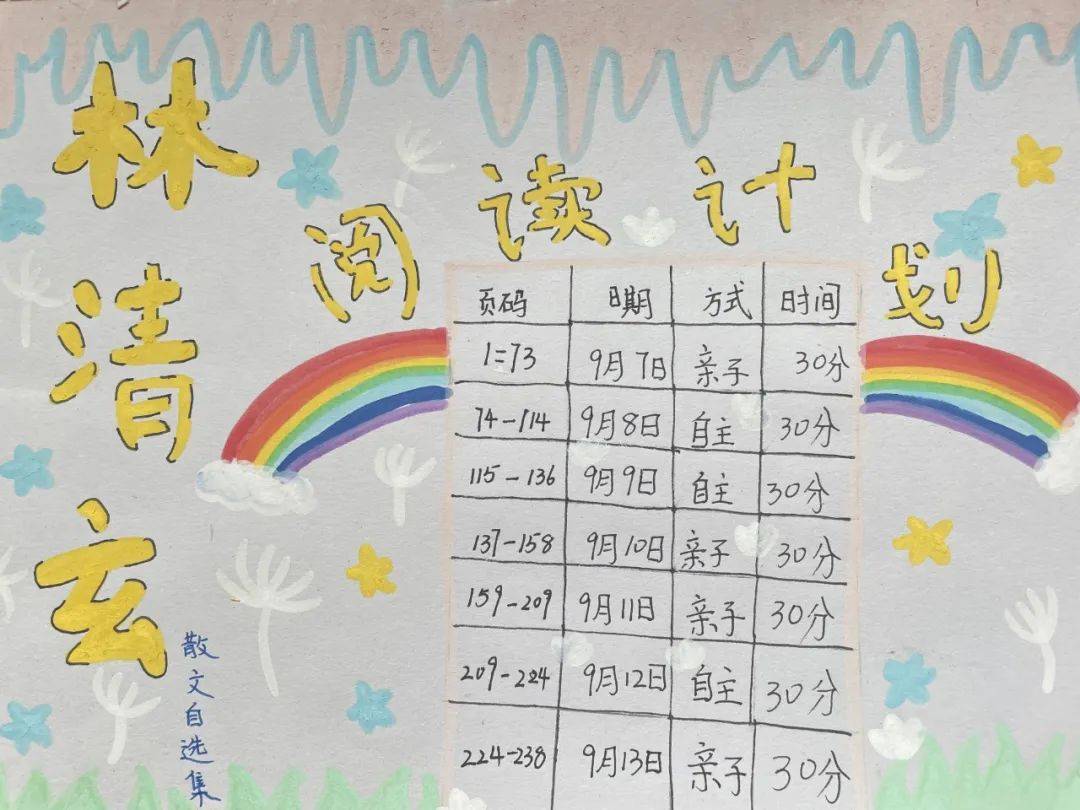 林清玄
散文自选集
阅读计划
页码 日期 方式 时间
1=73 9月7日 亲子 30分
74-114 9月8日 自主 30分
115-136 9月9日 自主 30分
137-158 9月10日 亲子 30分
159-209 9月11日 亲子 30分
209-224 9月12日 自主 30分
224-238 9月13日 亲子 30分